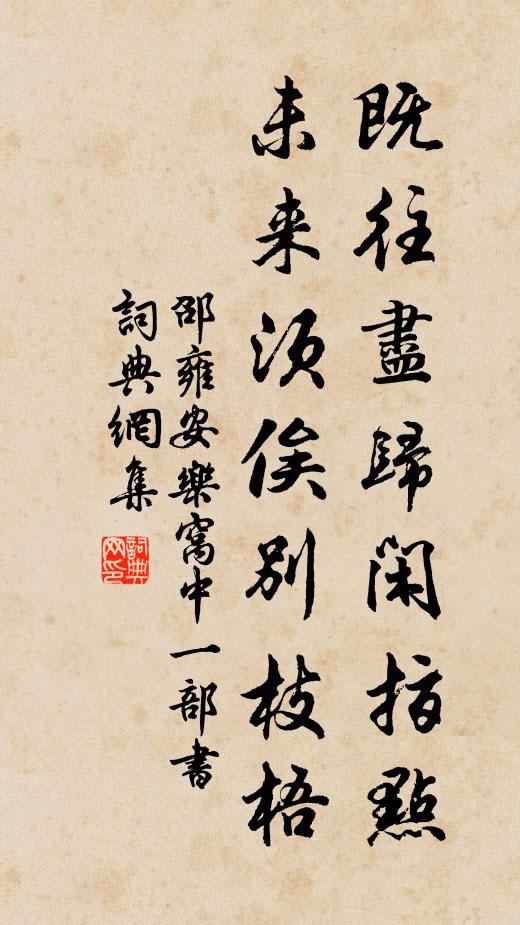 既往盡歸閑指點
未來須俟別枝梧
邵雍安樂窩中一部書
詞典網集
詞典网印